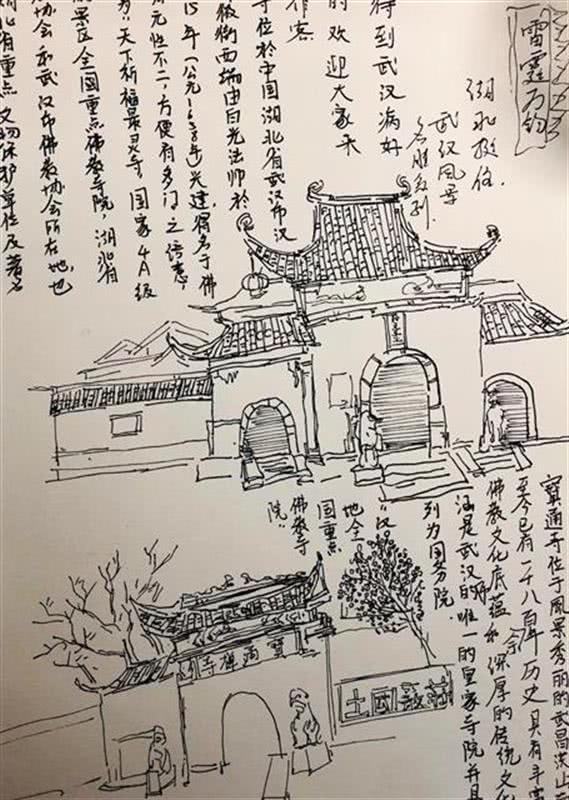 雷霆万钧
湖北挺住.
武汉风景
名胜系列.
得到武汉病好
的欢迎大家来
作客
寺位於中国湖北省武汉市汉
微街西端由白光法师於
15年(公元1658年)兴建,得名于佛
归元性不二,方便有多门之偈意,
为:天下祈福最灵寺,国家4A级
景区全国重点佛教寺院,湖北省
协会和武汉市佛教协会所在地,也
湖北省重点文物保护单位及著名
寳通寺位于風景秀丽的武昌洪山
至今已有一千八百余年历史具有丰
佛教文化底蕴和深厚的传统文化
涵是武汉市的唯一的皇家寺院并且
列为国务院
"汉
地全
国重点
佛教寺
院"
寳通禅寺
土国嚴莊